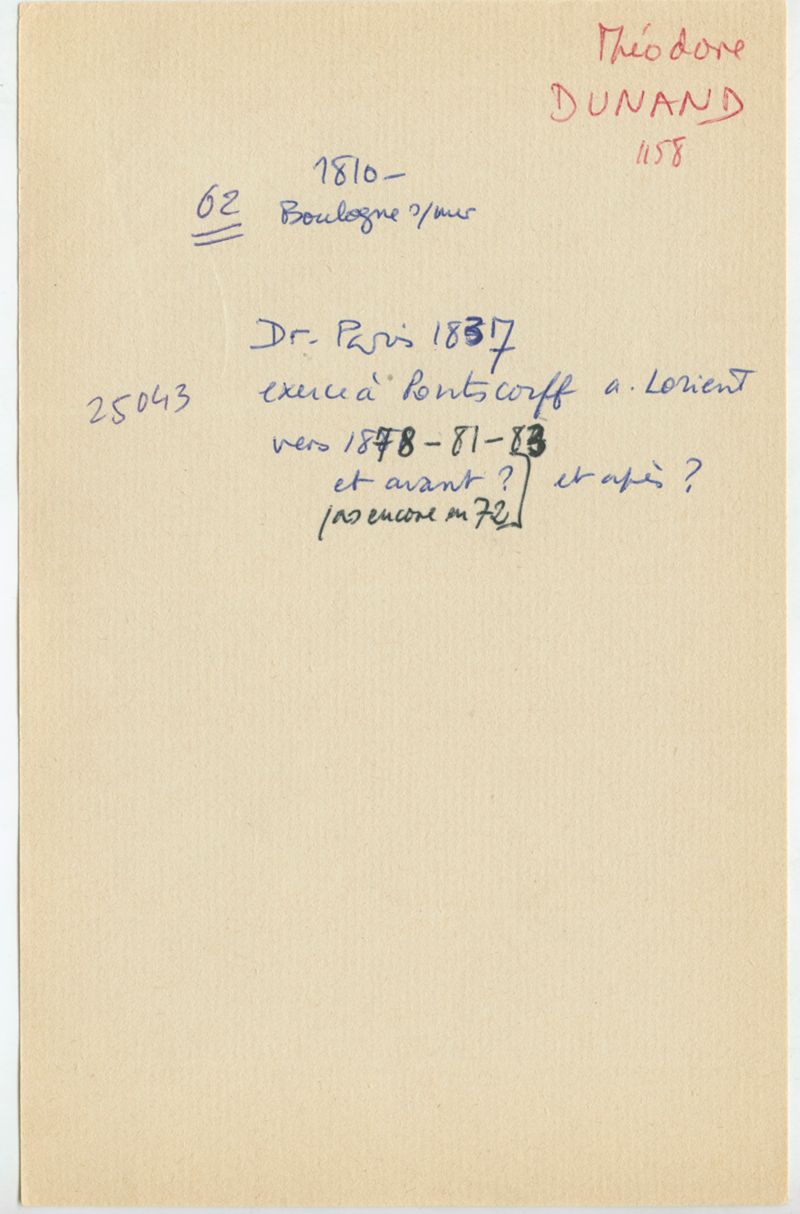 Théodore
DUNAND
1158
1810-
62 Boulogne s/mer
Dr. Paris 1837
25043 exerce à Pontscorff a. Lorient
vers 1878-81-83
et avant ? et après ?
pas encore en 72